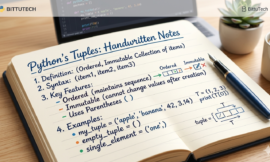 BITTUTECH
BittuTech
Python's Tuples: Handwritten Notes
1. Definition: (Ordered, Immutable Collection of items)
2. Syntax: (item1, item2, item3)
3. Key Features:
- Ordered (maintains sequence)
- Immutable (cannot change values after creation)
- Uses Parentheses ( )
Ordered
Immutable
4. Examples:
• my_tuple = ('apple', 'banana', 42, 3.14)
• empty_tuple = ()
• single_element = ('one',)
tuple =
BITTUTECH
BittuTech